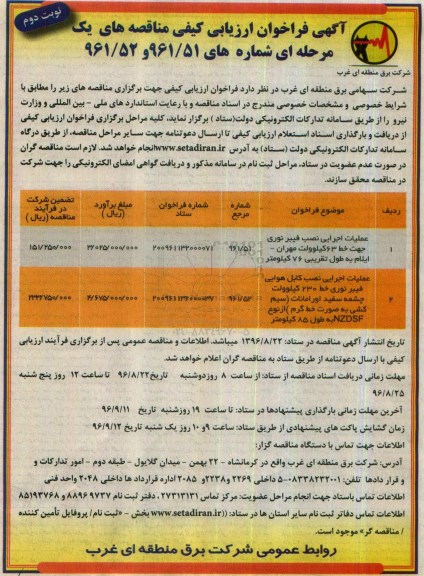 نوبت دوم
آگهی فراخوان ارزیابی کیفی مناقصه های یک
مرحله ای شماره های ۹۶۱/۵۱ و ۹۶۱/۵۲
شرکت برق منطقه ای غرب
شرکت سهامی برق منطقه ای غرب در نظر دارد فراخوان ارزیابی کیفی جهت برگزاری مناقصه های زیر را مطابق با
شرایط خصوصی و مشخصات خصوصی مندرج در اسناد مناقصه و با رعایت استاندارد های ملی - بین المللی و وزارت
نیرو را از طریق سامانه تدارکات الکترونیکی دولت(ستاد) برگزار نماید، کلیه مراحل برگزاری فراخوان ارزیابی کیفی
از دریافت و بارگذاری اسناد استعلام ارزیابی کیفی تا ارسال دعوتنامه جهت سایر مراحل مناقصه، از طریق درگاه
سامانه تدارکات الکترونیکی دولت (ستاد) به آدرس www.setadiran.ir انجام خواهد شد. لازم است مناقصه گران
در صورت عدم عضویت در ستاد، مراحل ثبت نام در سامانه مذکور و دریافت گواهی امضای الکترونیکی را جهت شرکت
در مناقصه محقق سازند.
ردیف موضوع فراخوان شماره مرجع شماره فراخوان ستاد مبلغ برآورد (ریال) تضمین شرکت در فرآیند مناقصه (ریال)
۱ عملیات اجرایی نصب فیبر نوری
جهت خط ۶۳کیلوولت مهران -
ایلام به طول تقریبی ۷۶ کیلومتر
۲ عملیات اجرایی نصب کابل هوایی
فیبر نوری خط ۲۳۰ کیلوولت
چشمه سفید اورامانات (سیم
کشی به صورت خط گرم) ازنوع
NZDSF به طول ۸۵ کیلومتر
تاریخ انتشار آگهی مناقصه در ستاد: ۱۳۹۶/۸/۲۲ میباشد. اطلاعات و مناقصه عمومی پس از برگزاری فرآیند ارزیابی
کیفی با ارسال دعوتنامه از طریق ستاد به مناقصه گران اعلام خواهد شد.
مهلت زمانی دریافت اسناد مناقصه از ستاد: از ساعت ۸ روزدوشنبه تاریخ ۹۶/۸/۲۲ تا ساعت ۱۲ روز پنج شنبه
۹۶/۸/۲۵
آخرین مهلت زمانی بارگذاری پیشنهادها در ستاد: تا ساعت ۱۹ روزشنبه تاریخ ۹۶/۹/۱۱
زمان گشایش پاکت های پیشنهادی از طریق ستاد: ساعت ۹و ۱۰ روز یک شنبه تاریخ ۹۶/۹/۱۲
اطلاعات جهت تماس با دستگاه مناقصه گزار:
آدرس: شرکت برق منطقه ای غرب واقع در کرمانشاه - ۲۲ بهمن - میدان گلایول - طبقه دوم - امور تدارکات و
و قرار دادها تلفن: ۰۸۳۳۸۲۳۲۰۰۱-۵ داخلی ۲۲۶۹ و ۲۲۳۸و ۲۰۸۵ اداره قرارداد ها داخلی ۲۰۴۸ واحد فنی
اطلاعات تماس باستاد جهت انجام مراحل عضویت: مرکز تماس ۲۷۳۱۳۱۳۱ ، دفتر ثبت نام ۸۸۹۶۹۷۳۷ و ۸۵۱۹۳۷۶۸
اطلاعات تماس دفاتر ثبت نام سایر استان ها در ستاد: ((www.setadiran.ir) بخش - «ثبت نام/ پروفایل تأمین کننده
/ مناقصه گر» موجود است.
روابط عمومی شرکت برق منطقه ای غرب